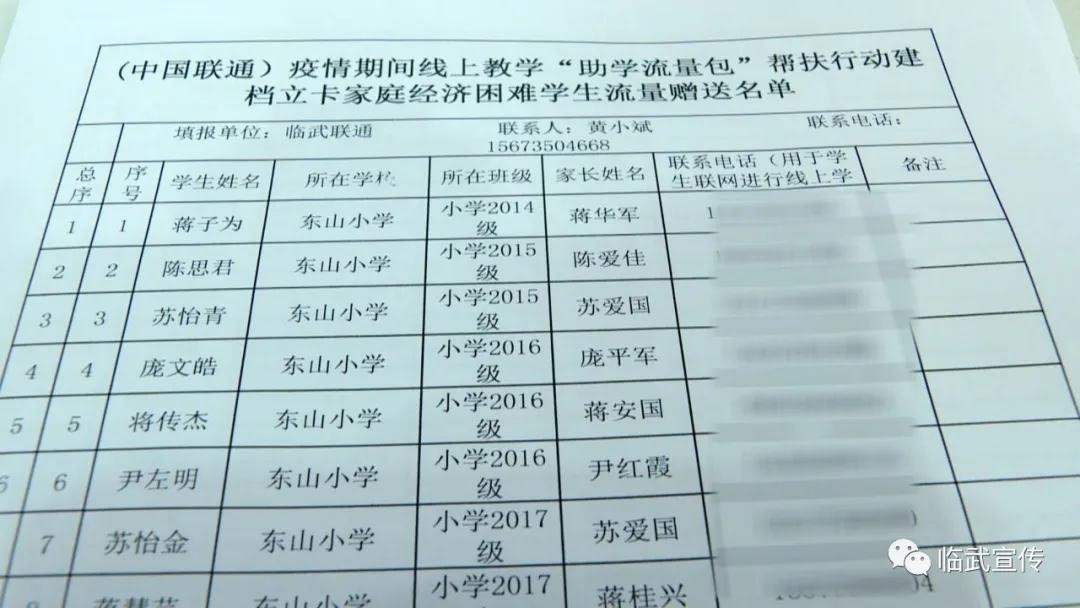 （中国联通）疫情期间线上教学“助学流量包”帮扶行动建
档立卡家庭经济困难学生流量赠送名单
填报单位：临武联通 联系人：黄小斌 联系电话：
15673504668
总序 序号 学生姓名 所在学校 所在班级 家长姓名 联系电话（用于学生联网进行线上学 备注
1 1 蒋子为 东山小学 小学2014级 蒋华军 1
2 2 陈思君 东山小学 小学2015级 陈爱佳
3 3 苏怡青 东山小学 小学2015级 苏爱国
4 4 庞文皓 东山小学 小学2016级 庞平军
5 5 将传杰 东山小学 小学2016级 蒋安国
6 6 尹左明 东山小学 小学2016级 尹红霞
7 苏怡金 东山小学 小学2017级 苏爱国
东山小学 小学2017 蒋桂兴
临武宣传